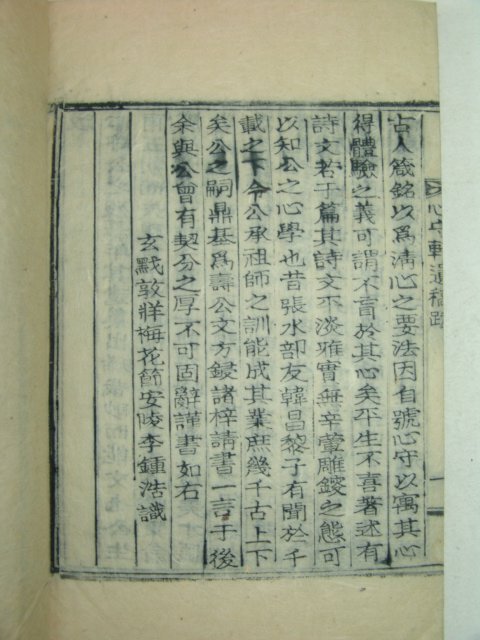 心守軒遺稿跋
古人箴銘以爲淸心之要法因自號心守以寓其心
得體驗之義可謂不盲於其心矣平生不喜著述有
詩文若干篇其詩文不淡雅實無辛葷雕鎪之態可
以知公之心學也昔張水部友韓昌黎子有聞於千
載之下今公承祖師之訓能成其業庶幾千古上下
矣公之嗣鼎基爲壽公文方鋟諸梓請書一言于後
余與公曾有契分之厚不可固辭謹書如右
玄黓敦牂梅花節安陵李鍾浩識